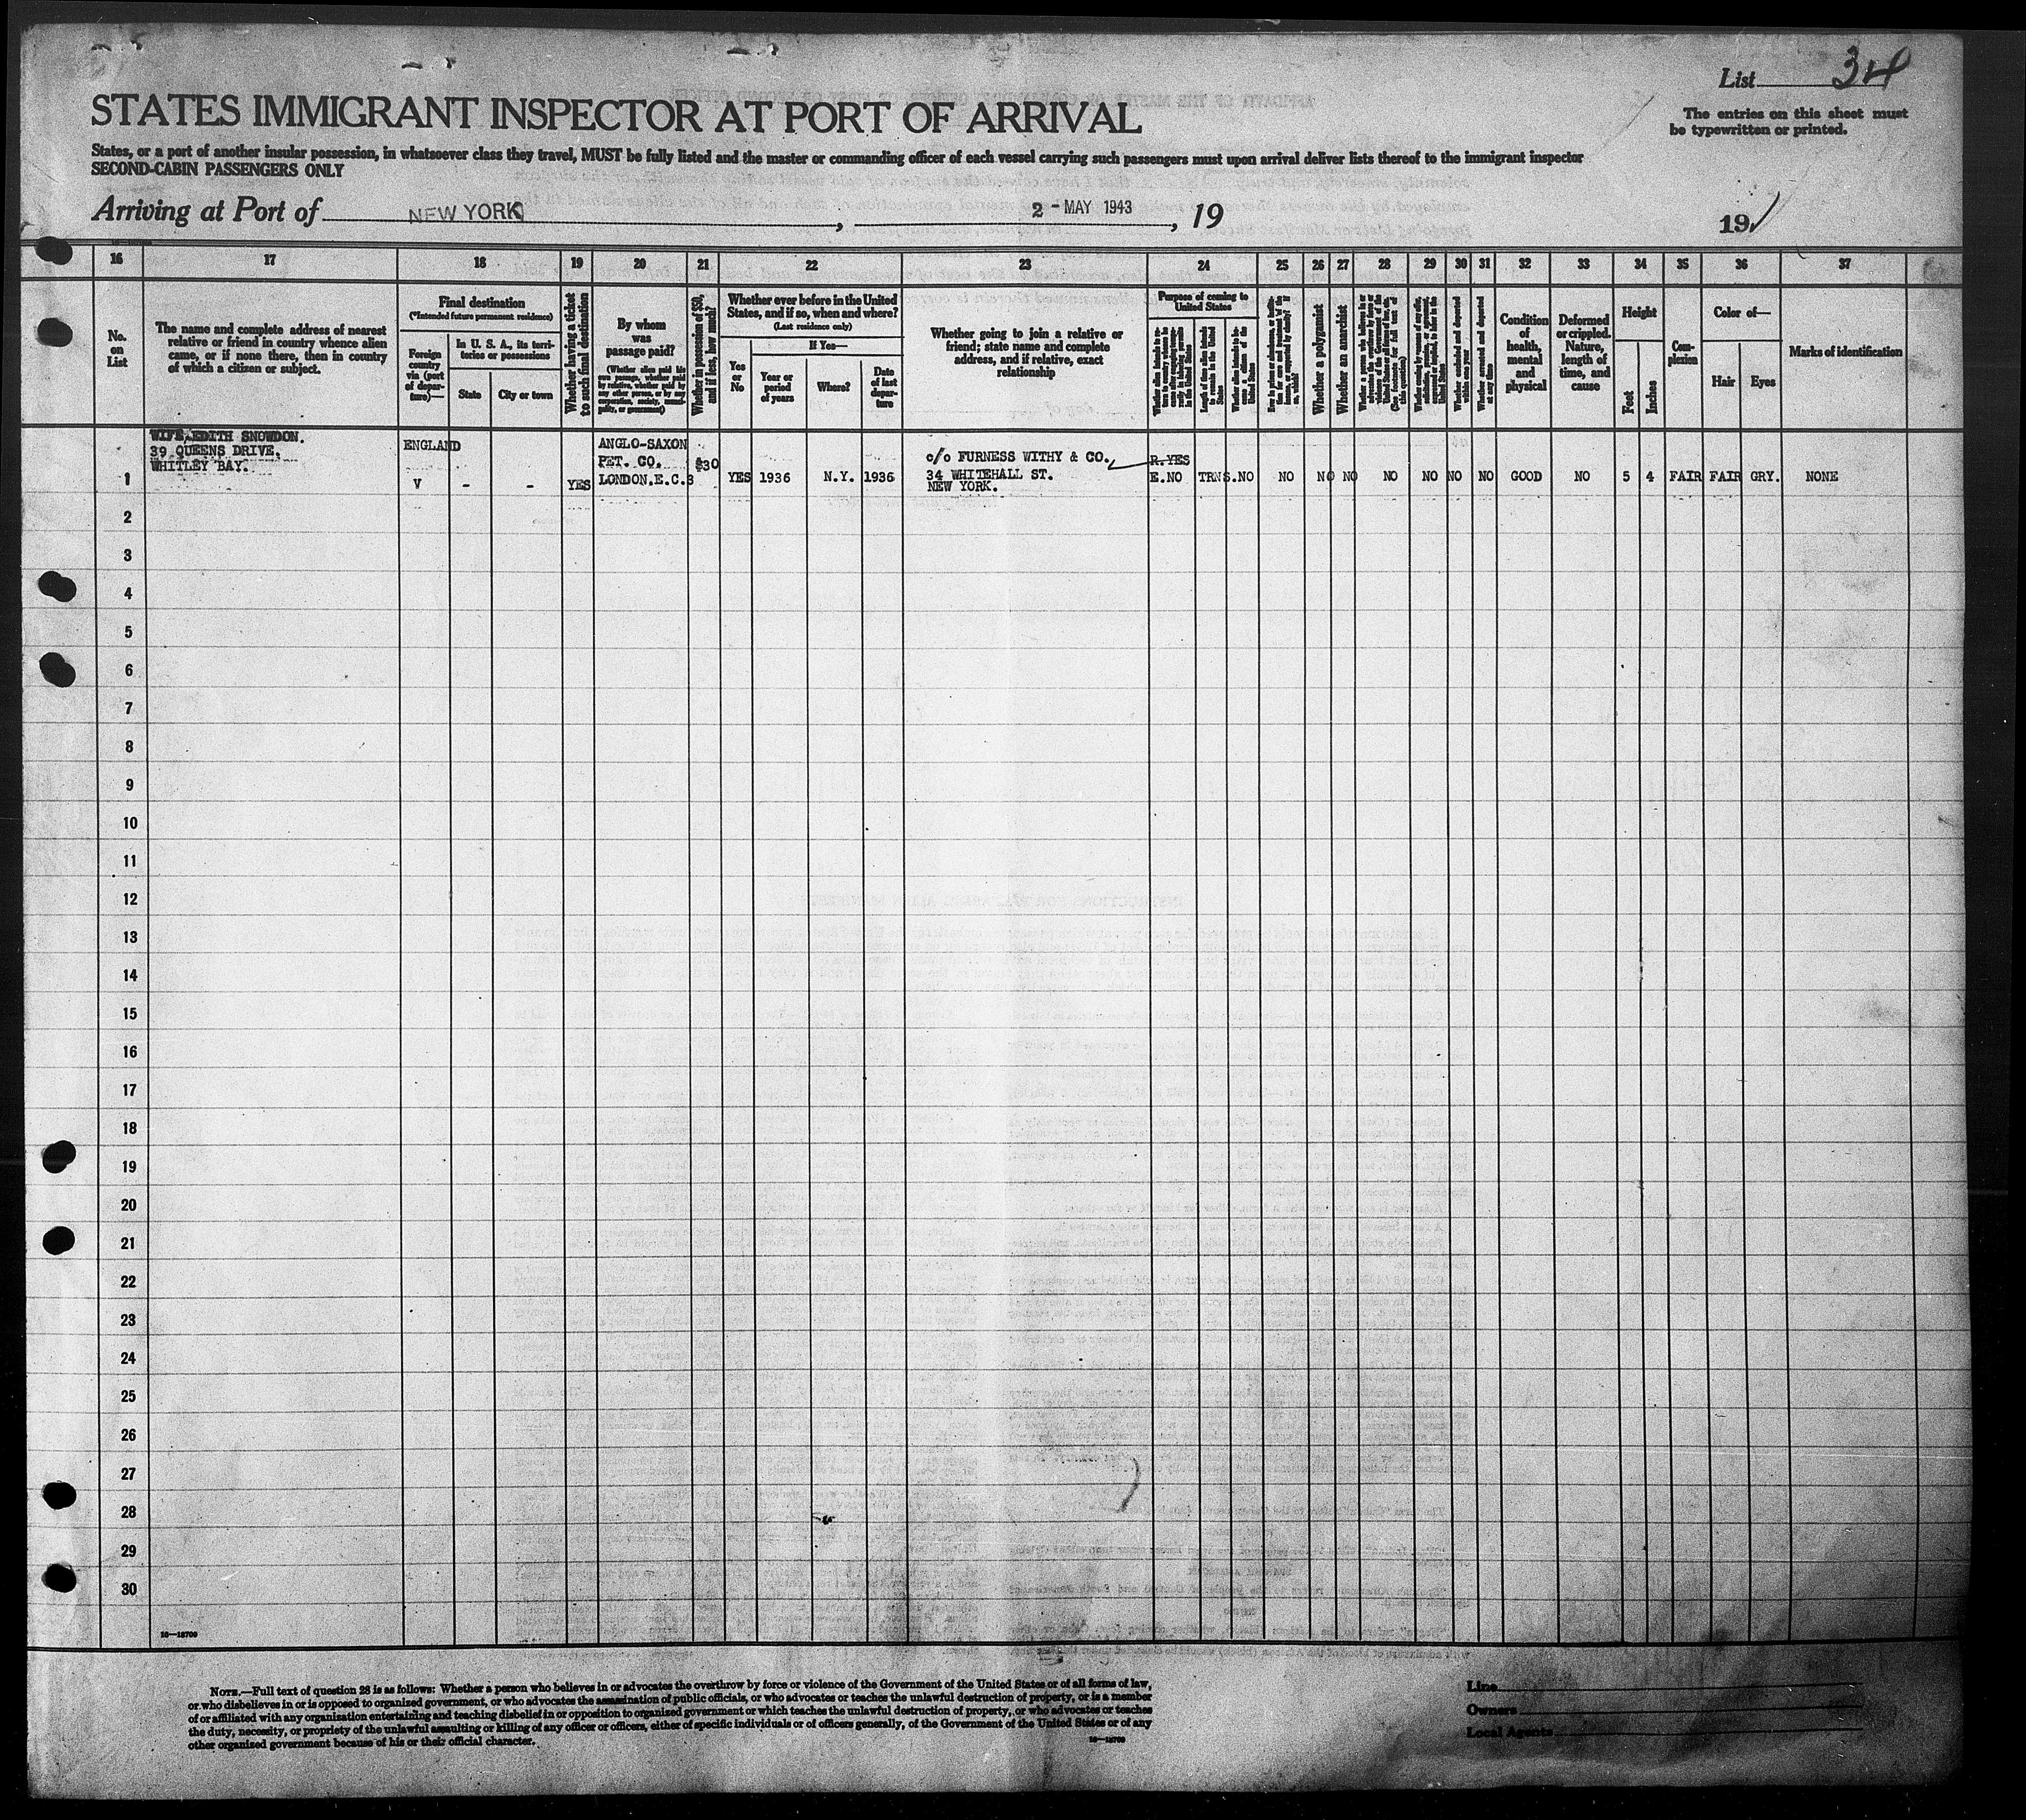 List 34
STATES IMMIGRANT INSPECTOR AT PORT OF ARRIVAL
The entries on this sheet must
be typewritten or printed.
States, or a port of another insular possession, in whatsoever class they travel, MUST be fully listed and the master or commanding officer of each vessel carrying such passengers must upon arrival deliver lists thereof to the immigrant inspector
SECOND-CABIN PASSENGERS ONLY
Arriving at Port of NEW YORK, 2 - MAY 1943, 19
19
16 17 18 19 20 21 22 23 24 25 26 27 28 29 30 31 32 33 34 35 36 37
No.
on
List
The name and complete address of nearest
relative or friend in country whence alien
came, or if none there, then in country
of which a citizen or subject.
Final destination
(*Intended future permanent residence)
Foreign
country
via (port
of depar-
ture)—
In U. S. A., its terri-
tories or possessions
State
City or town
Whether having a ticket
to such final destination
By whom
was
passage paid?
(Whether alien paid his
own passage, whether paid
by relative, whether paid by
any other person, or by any
corporation, society, munici-
pality, or government)
Whether in possession of $50,
and if less, how much?
Whether ever before in the United
States, and if so, when and where?
(Last residence only)
Yes
or
No
If Yes—
Year or
period
of years
Where?
Date
of last
depar-
ture
Whether going to join a relative or
friend; state name and complete
address, and if relative, exact
relationship
Purpose of coming to
United States
Whether a polygamist
Whether an anarchist
Condition
of
health,
mental
and
physical
Deformed
or crippled.
Nature,
length of
time, and
cause
Height
Feet
Inches
Com-
plexion
Color of—
Hair
Eyes
Marks of identification
WIFE, EDITH SNOWDON.
39 QUEENS DRIVE,
WHITLEY BAY.
ENGLAND
V - -
YES
ANGLO-SAXON
PET. CO.
LONDON.E.C.3
$30
YES 1936 N.Y. 1936
c/o FURNESS WITHY & CO.
34 WHITEHALL ST.
NEW YORK.
R.YES
E.NO TRNS.NO NO NO NO NO NO NO NO GOOD NO 5 4 FAIR FAIR GRY. NONE
1
2
3
4
5
6
7
8
9
10
11
12
13
14
15
16
17
18
19
20
21
22
23
24
25
26
27
28
29
30
16—18709
NOTE.—Full text of question 28 is as follows: Whether a person who believes in or advocates the overthrow by force or violence of the Government of the United States or of all forms of law,
or who disbelieves in or is opposed to organized government, or who advocates the assassination of public officials, or who advocates or teaches the unlawful destruction of property, or is a member
of or affiliated with any organization entertaining and teaching disbelief in or opposition to organized government or which teaches the unlawful destruction of property, or who advocates or teaches
the duty, necessity, or propriety of the unlawful assaulting or killing of any officer or officers, either of specific individuals or of officers generally, of the Government of the United States or of any
other organized government because of his or their official character.
16—18709
Line
Owners
Local Agents